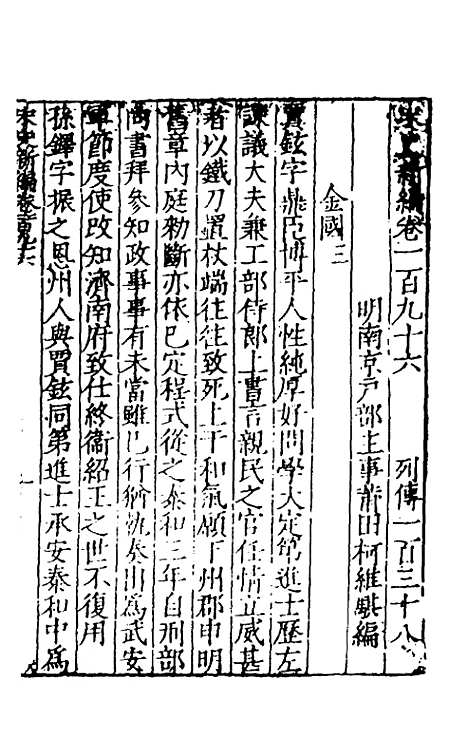 宋史新編卷一百九十六　列傳一百三十八
明南京戶部主事莆田柯維騏編
金國三
賈鉉字鼎臣博平人性純厚好問學大定第進士歷左
諫議大夫兼工部侍郎上書言親民之官任情立威甚
者以鐵刀置杖端往往致死上干和氣願下州郡申明
舊章內庭勑斷亦依已定程式從之泰和三年自刑部
尚書拜參知政事事有未當雖已行猶執奏出爲武安
軍節度使改知濟南府致仕終衞紹王之世不復用
孫鐸字振之恩州人與賈鉉同第進士承安泰和中爲
宋史新編卷一百九十六